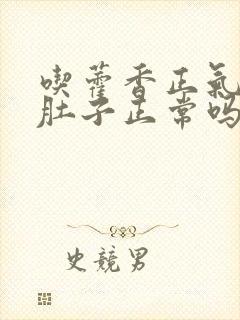 喫藿香正氣
肚子正常吗
史競男